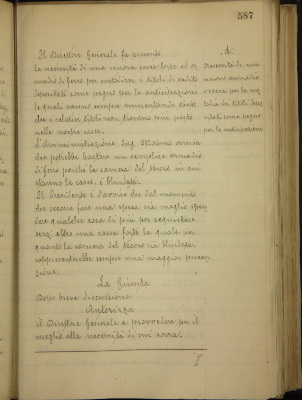 587
Il Direttore Generale fa presente
la necessità di una nuova cassa forte od ar
madio di ferro per custodirvi i titoli di credito
depositati come pegno per le anticipazioni
le quali vanno sempre aumentando tanto
che i relativi titoli non trovano più posto
nelle nostre casse.
L'Amministratore Ing. Adamo osserva
che potrebbe bastare un semplice armadio
di ferro poichè la camera del tesoro in cui
stanno le casse, è blindata.
Il Presidente è d'avviso che dal momento
che occorre fare una spesa sia meglio spen
dere qualche cosa di più per acquistare
senz'altro una cassa forte la quale per
quanto la camera del tesoro sia blindata,
rappresenterebbe sempre una maggior precau
zione.
La Giunta
Dopo breve discussione
Autorizza
il Direttore Generale a provvedere per il
meglio alla necessità di cui sopra.
d.
Necessità di un
nuovo armadio
o cassa per la cu
stodia dei titoli depo
sitati come pegno
per le anticipazioni